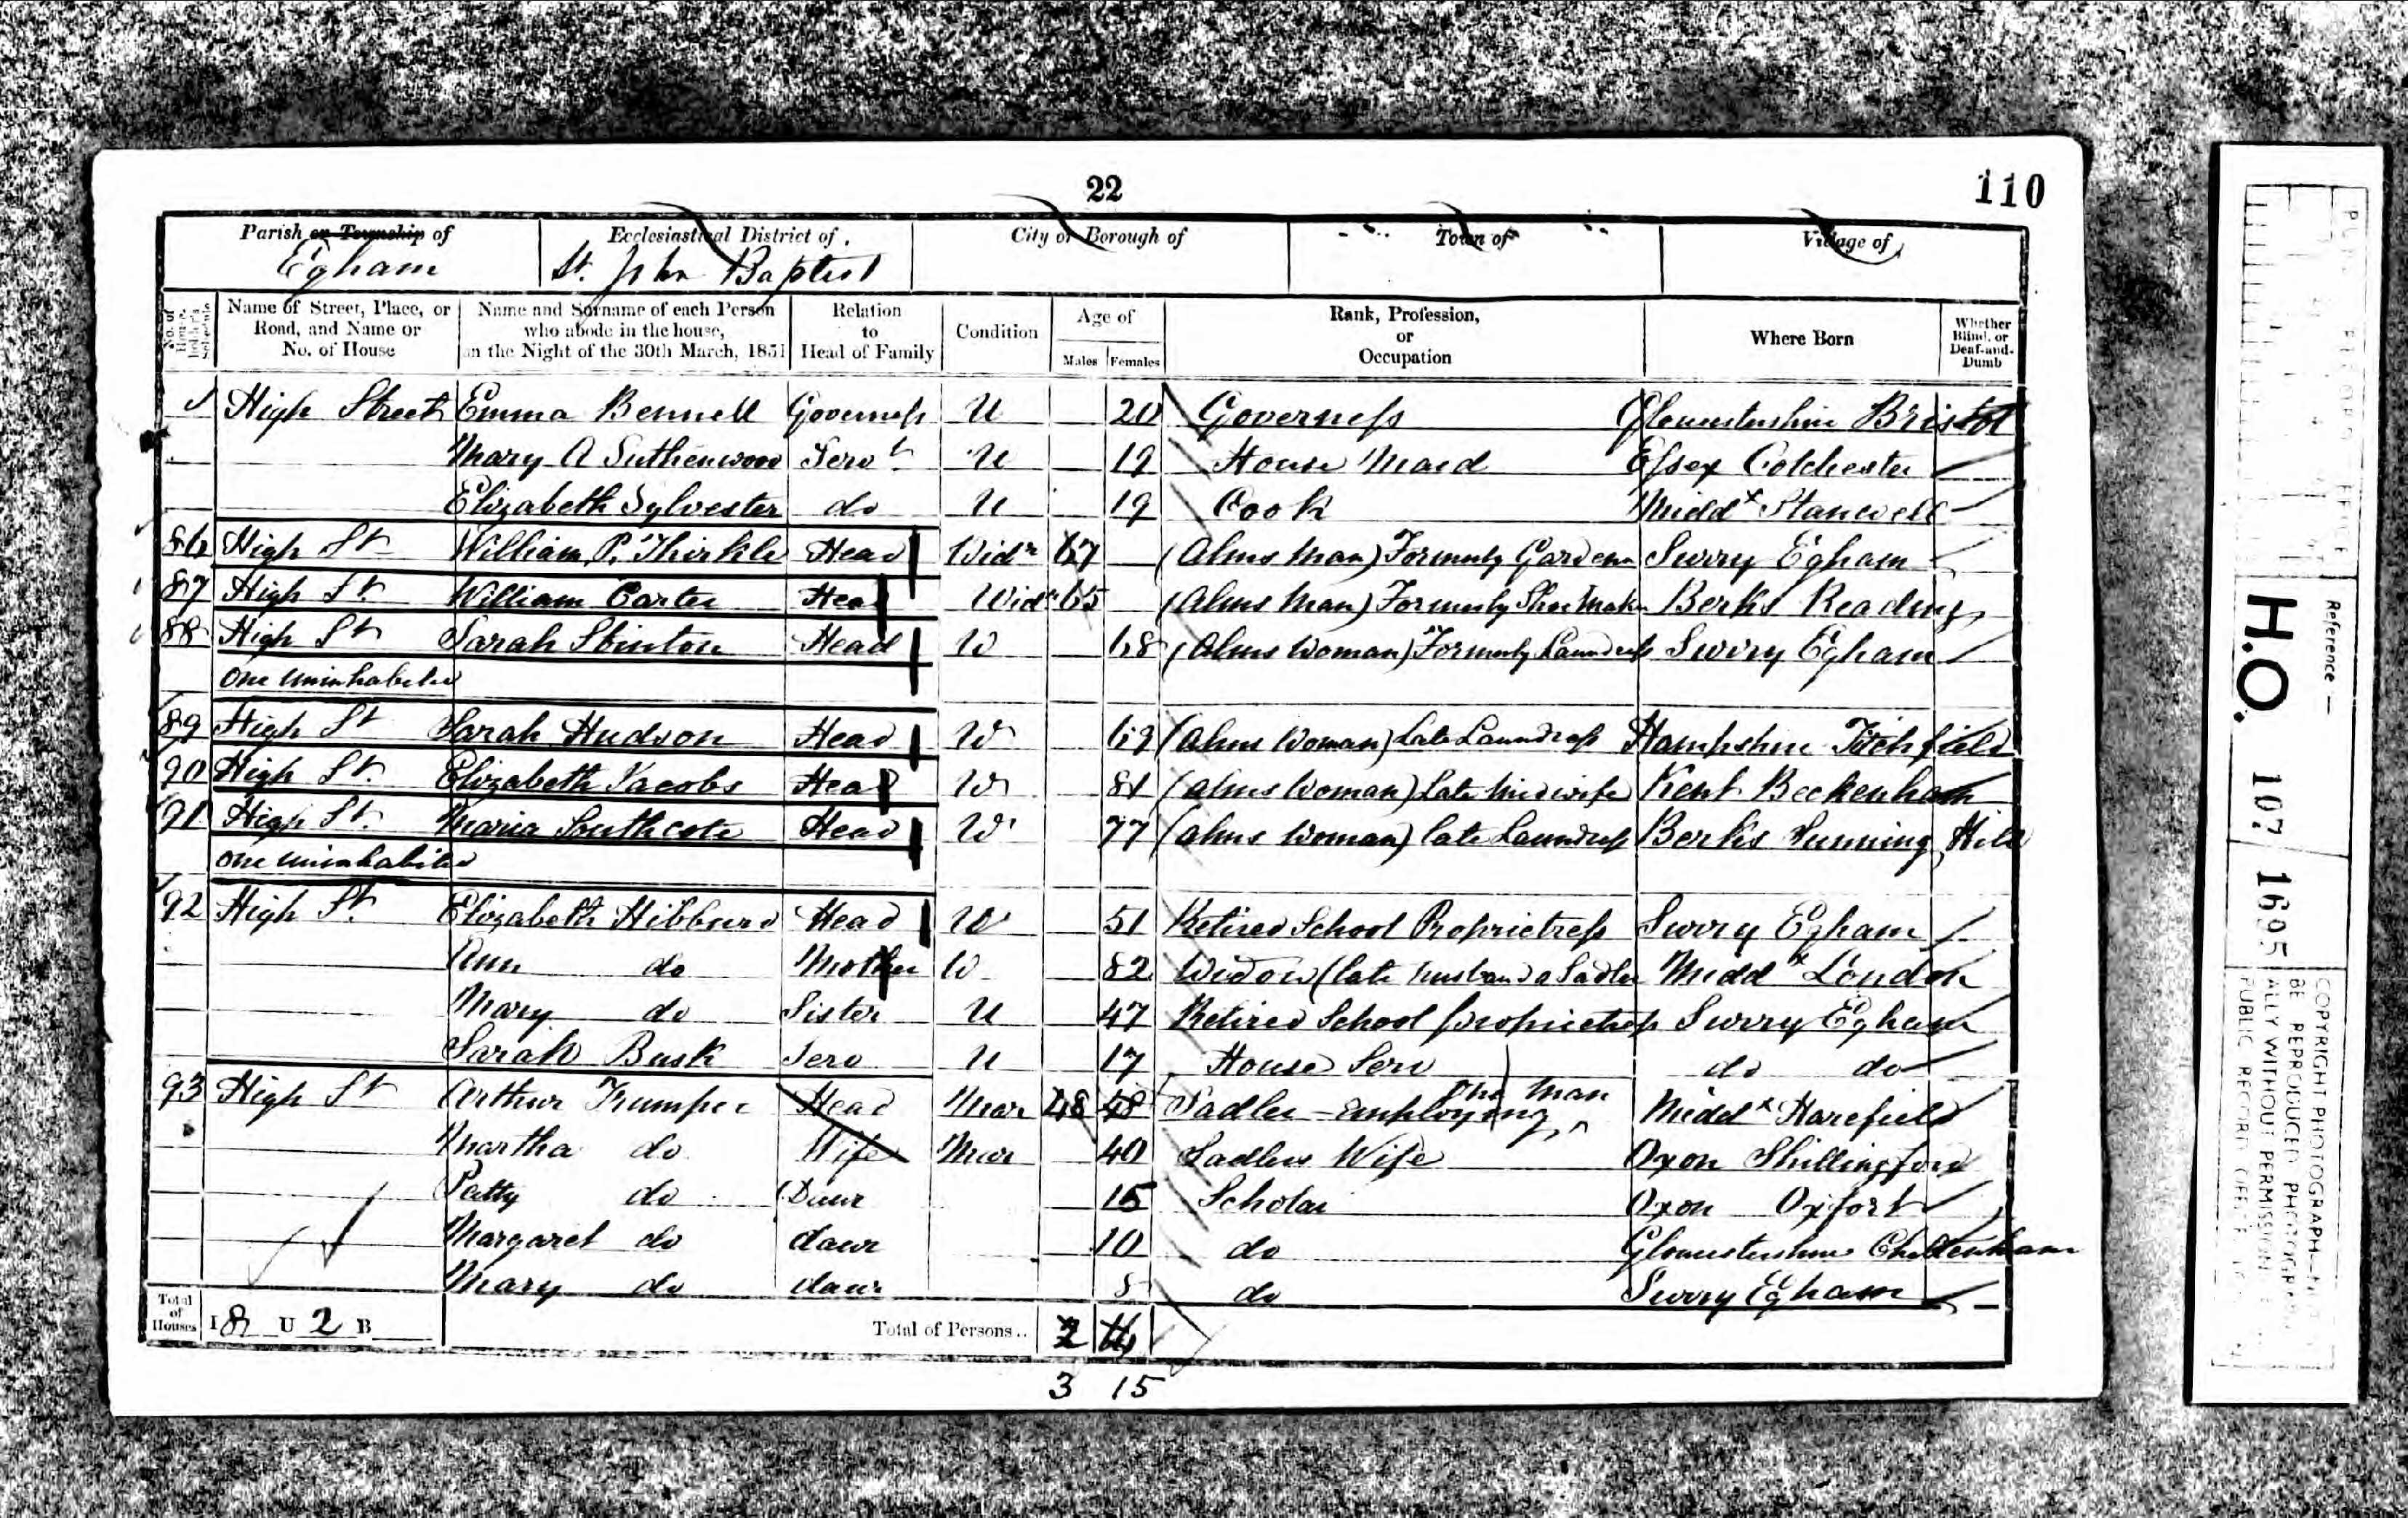 22
110
Parish or Township of
Egham
Ecclesiastical District of
St. John Baptist
City or Borough of
Town of
Village of
No. of House-holder's Schedule
Name of Street, Place, or Road, and Name or No. of House
Name and Surname of each Person who abode in the house, on the Night of the 30th March, 1851
Relation to Head of Family
Condition
Age of
Males Females
Rank, Profession, or Occupation
Where Born
Whether Blind, or Deaf-and-Dumb
High Street Emma Bennell Governess U 20 Governess Gloucestershire Bristol
Mary A Suthenwood Servt U 19 House Maid Essex Colchester
Elizabeth Sylvester do U 19 Cook Middx Stanwell
86 High St William P. Thirkle Head Widr 67 (Alms Man) Formerly Gardener Surry Egham
87 High St. William Carter Head Widr 65 (Alms Man) Formerly Shoe Maker Berks Reading
88 High St Sarah Stinton Head W 68 (Alms Woman) Formerly Laundress Surry Egham
One uninhabited
89 High St Sarah Hudson Head W 69 (Alms Woman) Late Laundress Hampshire Titchfield
90 High St. Elizabeth Jacobs Head W 81 (Alms Woman) Late Midwife Kent Beckenham
91 High St. Maria Southcote Head W 77 (Alms Woman) late Laundress Berks Sunning Hill
One uninhabited
92 High St. Elizabeth Hibburd Head W 51 Retired School Proprietress Surry Egham
Ann do Mother W 82 Widow (late husband a Sadler Middx London
Mary do Sister U 47 Retired School proprietress Surry Egham
Sarah Busk Serv U 17 House Serv do do
93 High St Arthur Trumper Head Mar 48 48 Sadler - employing one man Middx Harefield
Martha do Wife Mar 40 Sadlers Wife Oxon Shillingford
Patty do Daur 15 Scholar Oxon Oxfort
Margaret do daur 10 do Gloucestershire Cheltenham
Mary do daur 8 do Surry Egham
Total of Houses I 8 U 2 B
Total of Persons.. 2
3 15
Reference —
H.O. 107 1695
COPYRIGHT PHOTOGRAPH—
BE REPRODUCED PHOTOGRAPHIC
ALLY WITHOUT PERMISSION
PUBLIC RECORD OFFICE